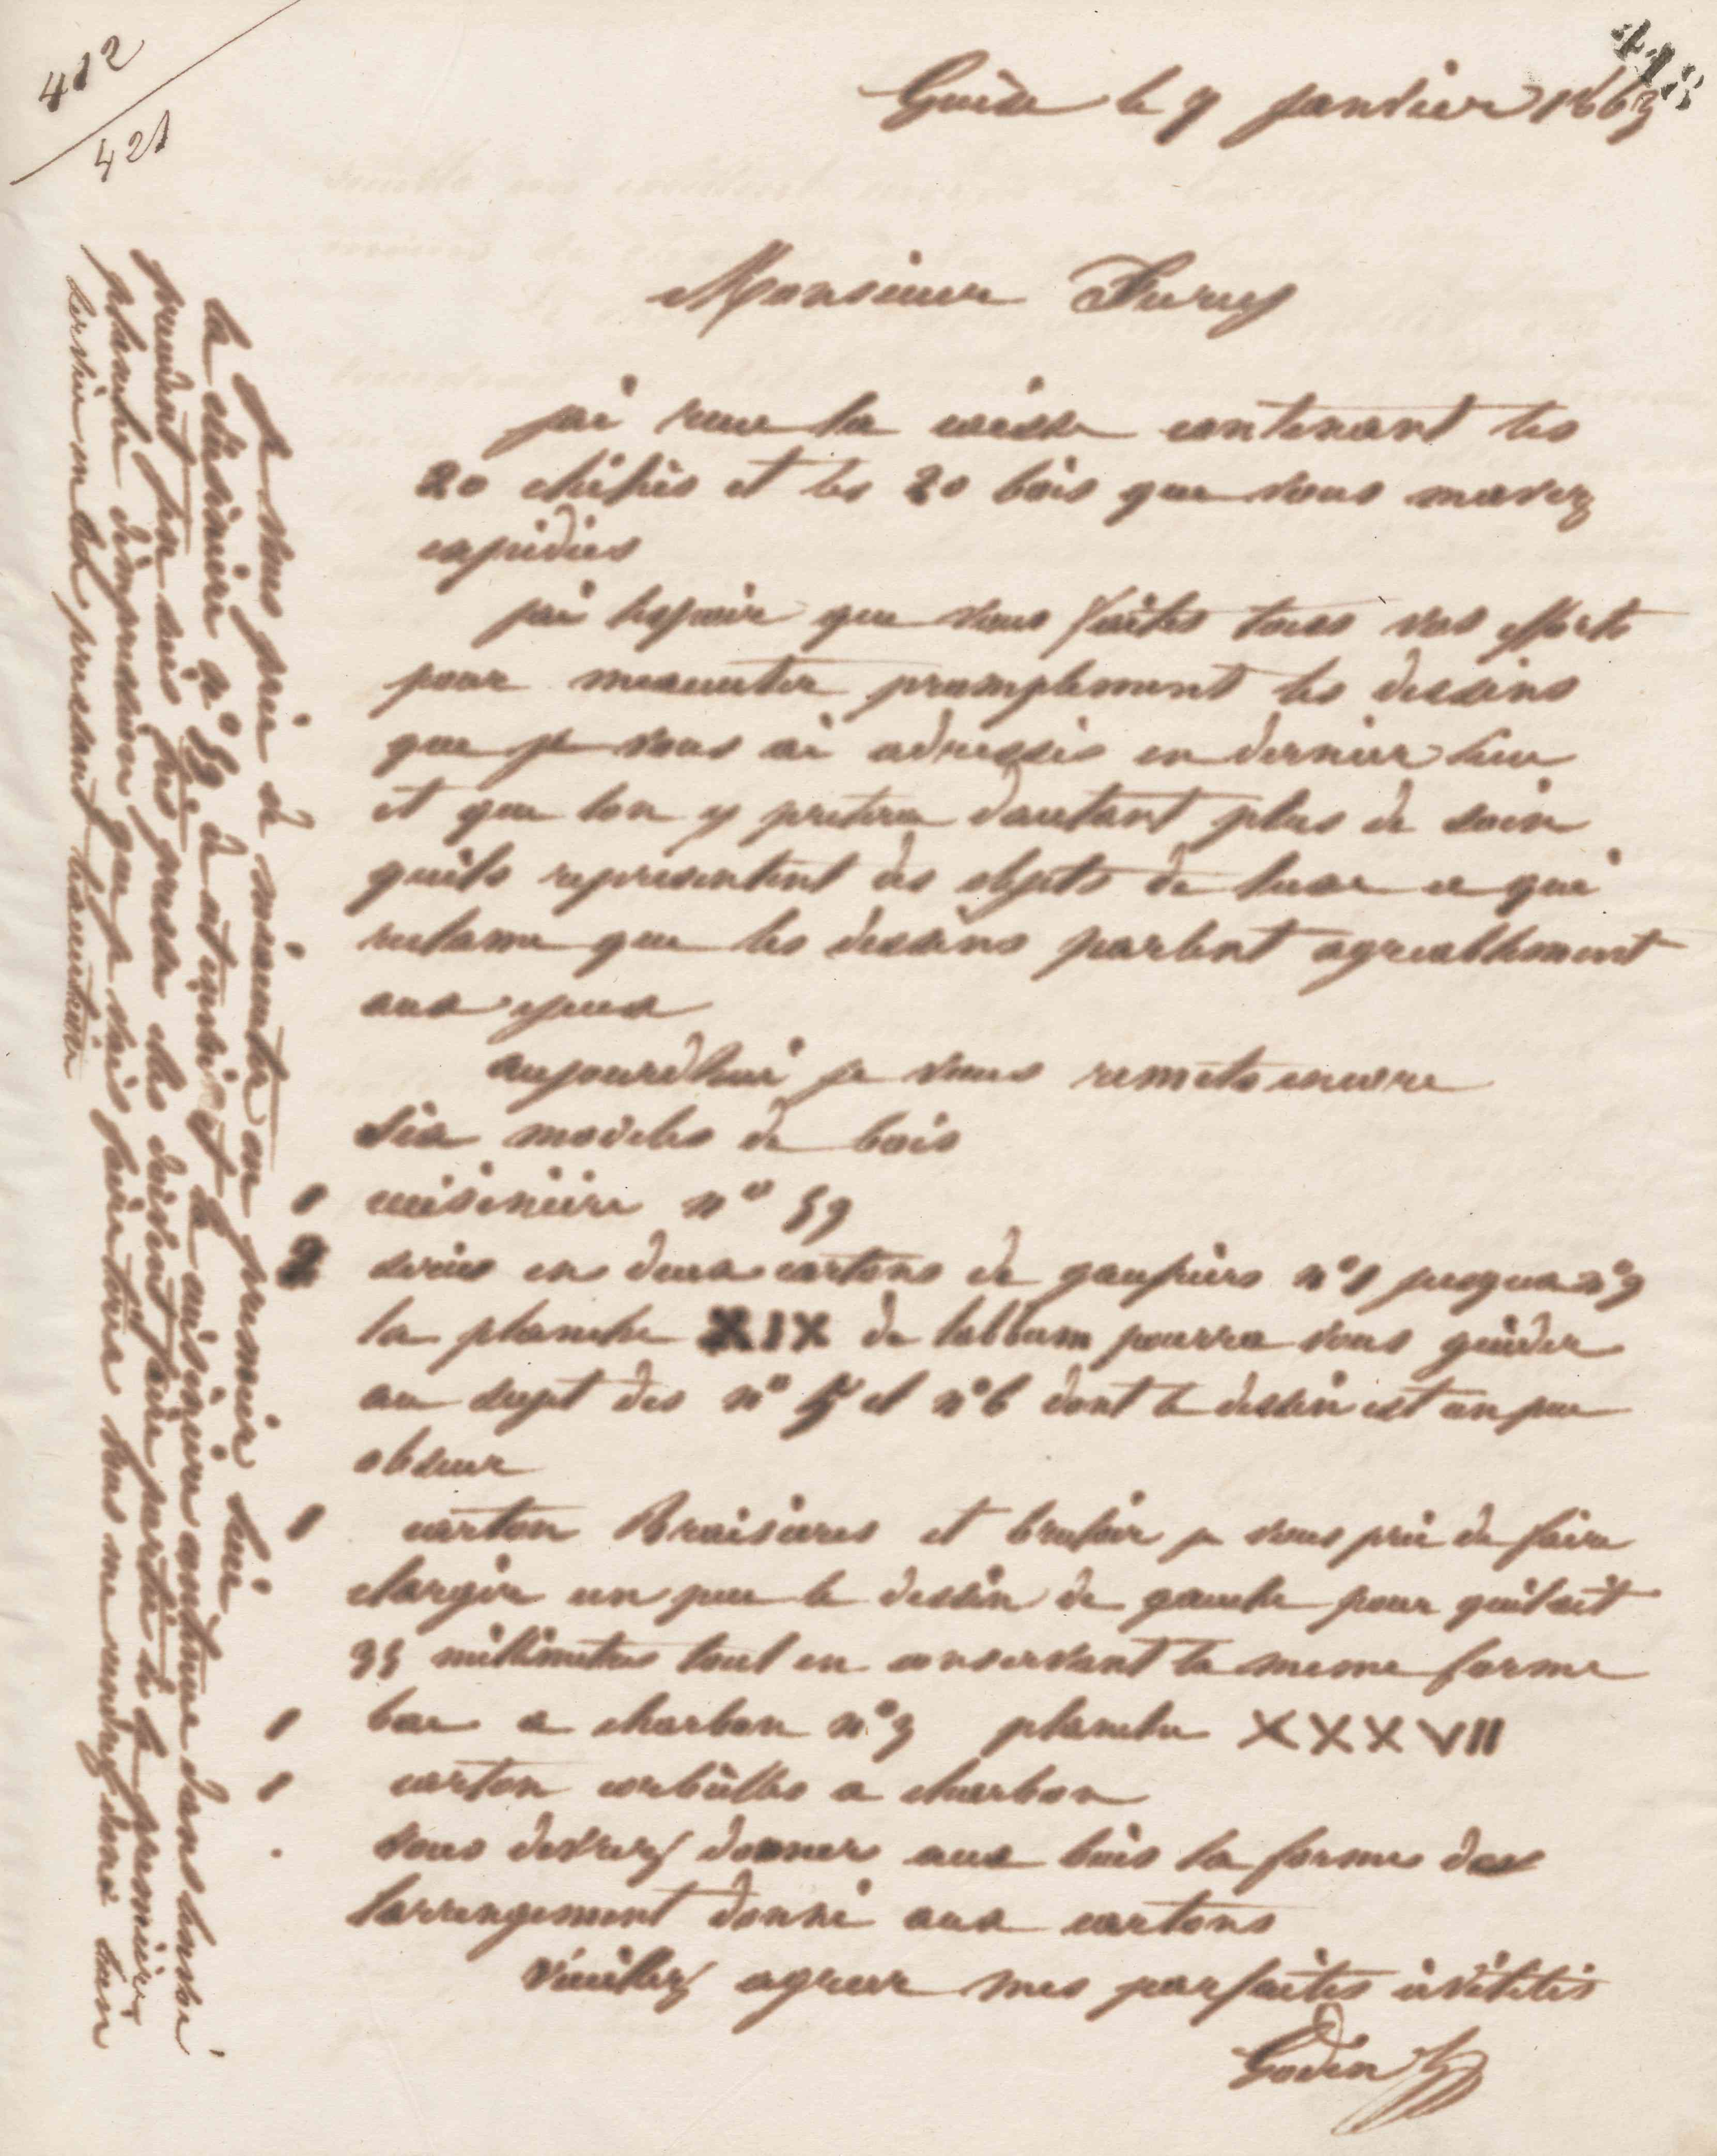 412
421
415
Guise le 7 janvier 1863
Monsieur
jai recu la caisse contenant les
20 clichés et les 20 bois que vous mavez
expediés
jai lespoir que vous faites tous vos efforts
pour mexecuter promptement les dessins
que je vous ai adressés en dernier lieu
et que lon y pretera dautant plus de soin
quils representent des objets de luxe ce qui
reclame que les dessins parlent agreablement
aux yeux
aujourdhui je vous remets encore
six modeles de bois
1 cuisiniere n° 59
2 series en deux cartons de gaufriers n°1 jusqua n°9
la planche XIX de lalbum pourra vous guider
au sujet des n° 5 et n°6 dont le dessin est un peu
obscur
1 carton Braisieres et bruloir je vous prie de faire
elargir un peu le dessin de gauche pour quil ait
35 millimetres tout en conservant la meme forme
1 bac a charbon n°3 planche XXXVII
1 carton corbeilles a charbon
vous devrez donner aux bois la forme de
larrengement donné aux cartons
Veuillez agreer mes parfaites civilités
Godin
Je vous prie de mexecuter en premier lieu
la cuisiniere n° 59 et la cuisiniere contenue dans lautre
planche dimpression que je vais faire
service en est pressant